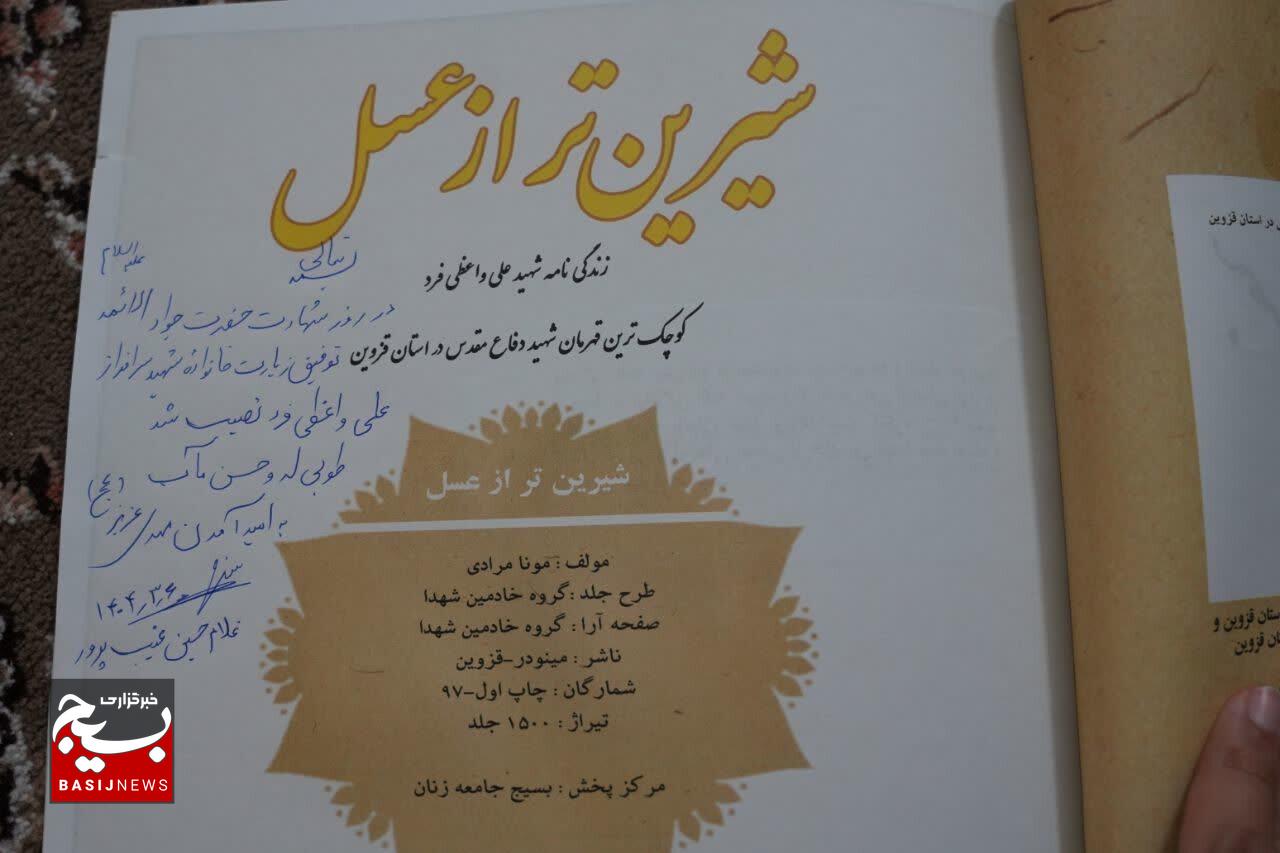 شیرین تر از عسل
زندگی نامه شهید علی واعظی فرد
کوچک ترین قهرمان شهید دفاع مقدس در استان قزوین
بسمه تعالی
علیه السلام
در روز شهادت حضرت جواد الائمه
توفیق زیارت خانواده شهید سرافراز
علی واعظی فرد نصیب شد
طوبی له و حسن مآب
(عج)
به امید آمدن مهدی عزیز
۱۴۰۴٫۳٫۶
غلامحسین غیب پرور
شیرین تر از عسل
مولف : مونا مرادی
طرح جلد :گروه خادمین شهدا
صفحه آرا : گروه خادمین شهدا
ناشر : مینودر-قزوین
شمارگان : چاپ اول-۹۷
تیراژ : ۱۵۰۰ جلد
مرکز پخش : بسیج جامعه زنان
در استان قزوین
استان قزوین و
قزوین
خبرگزاری
بسیج
BASIJNEWS